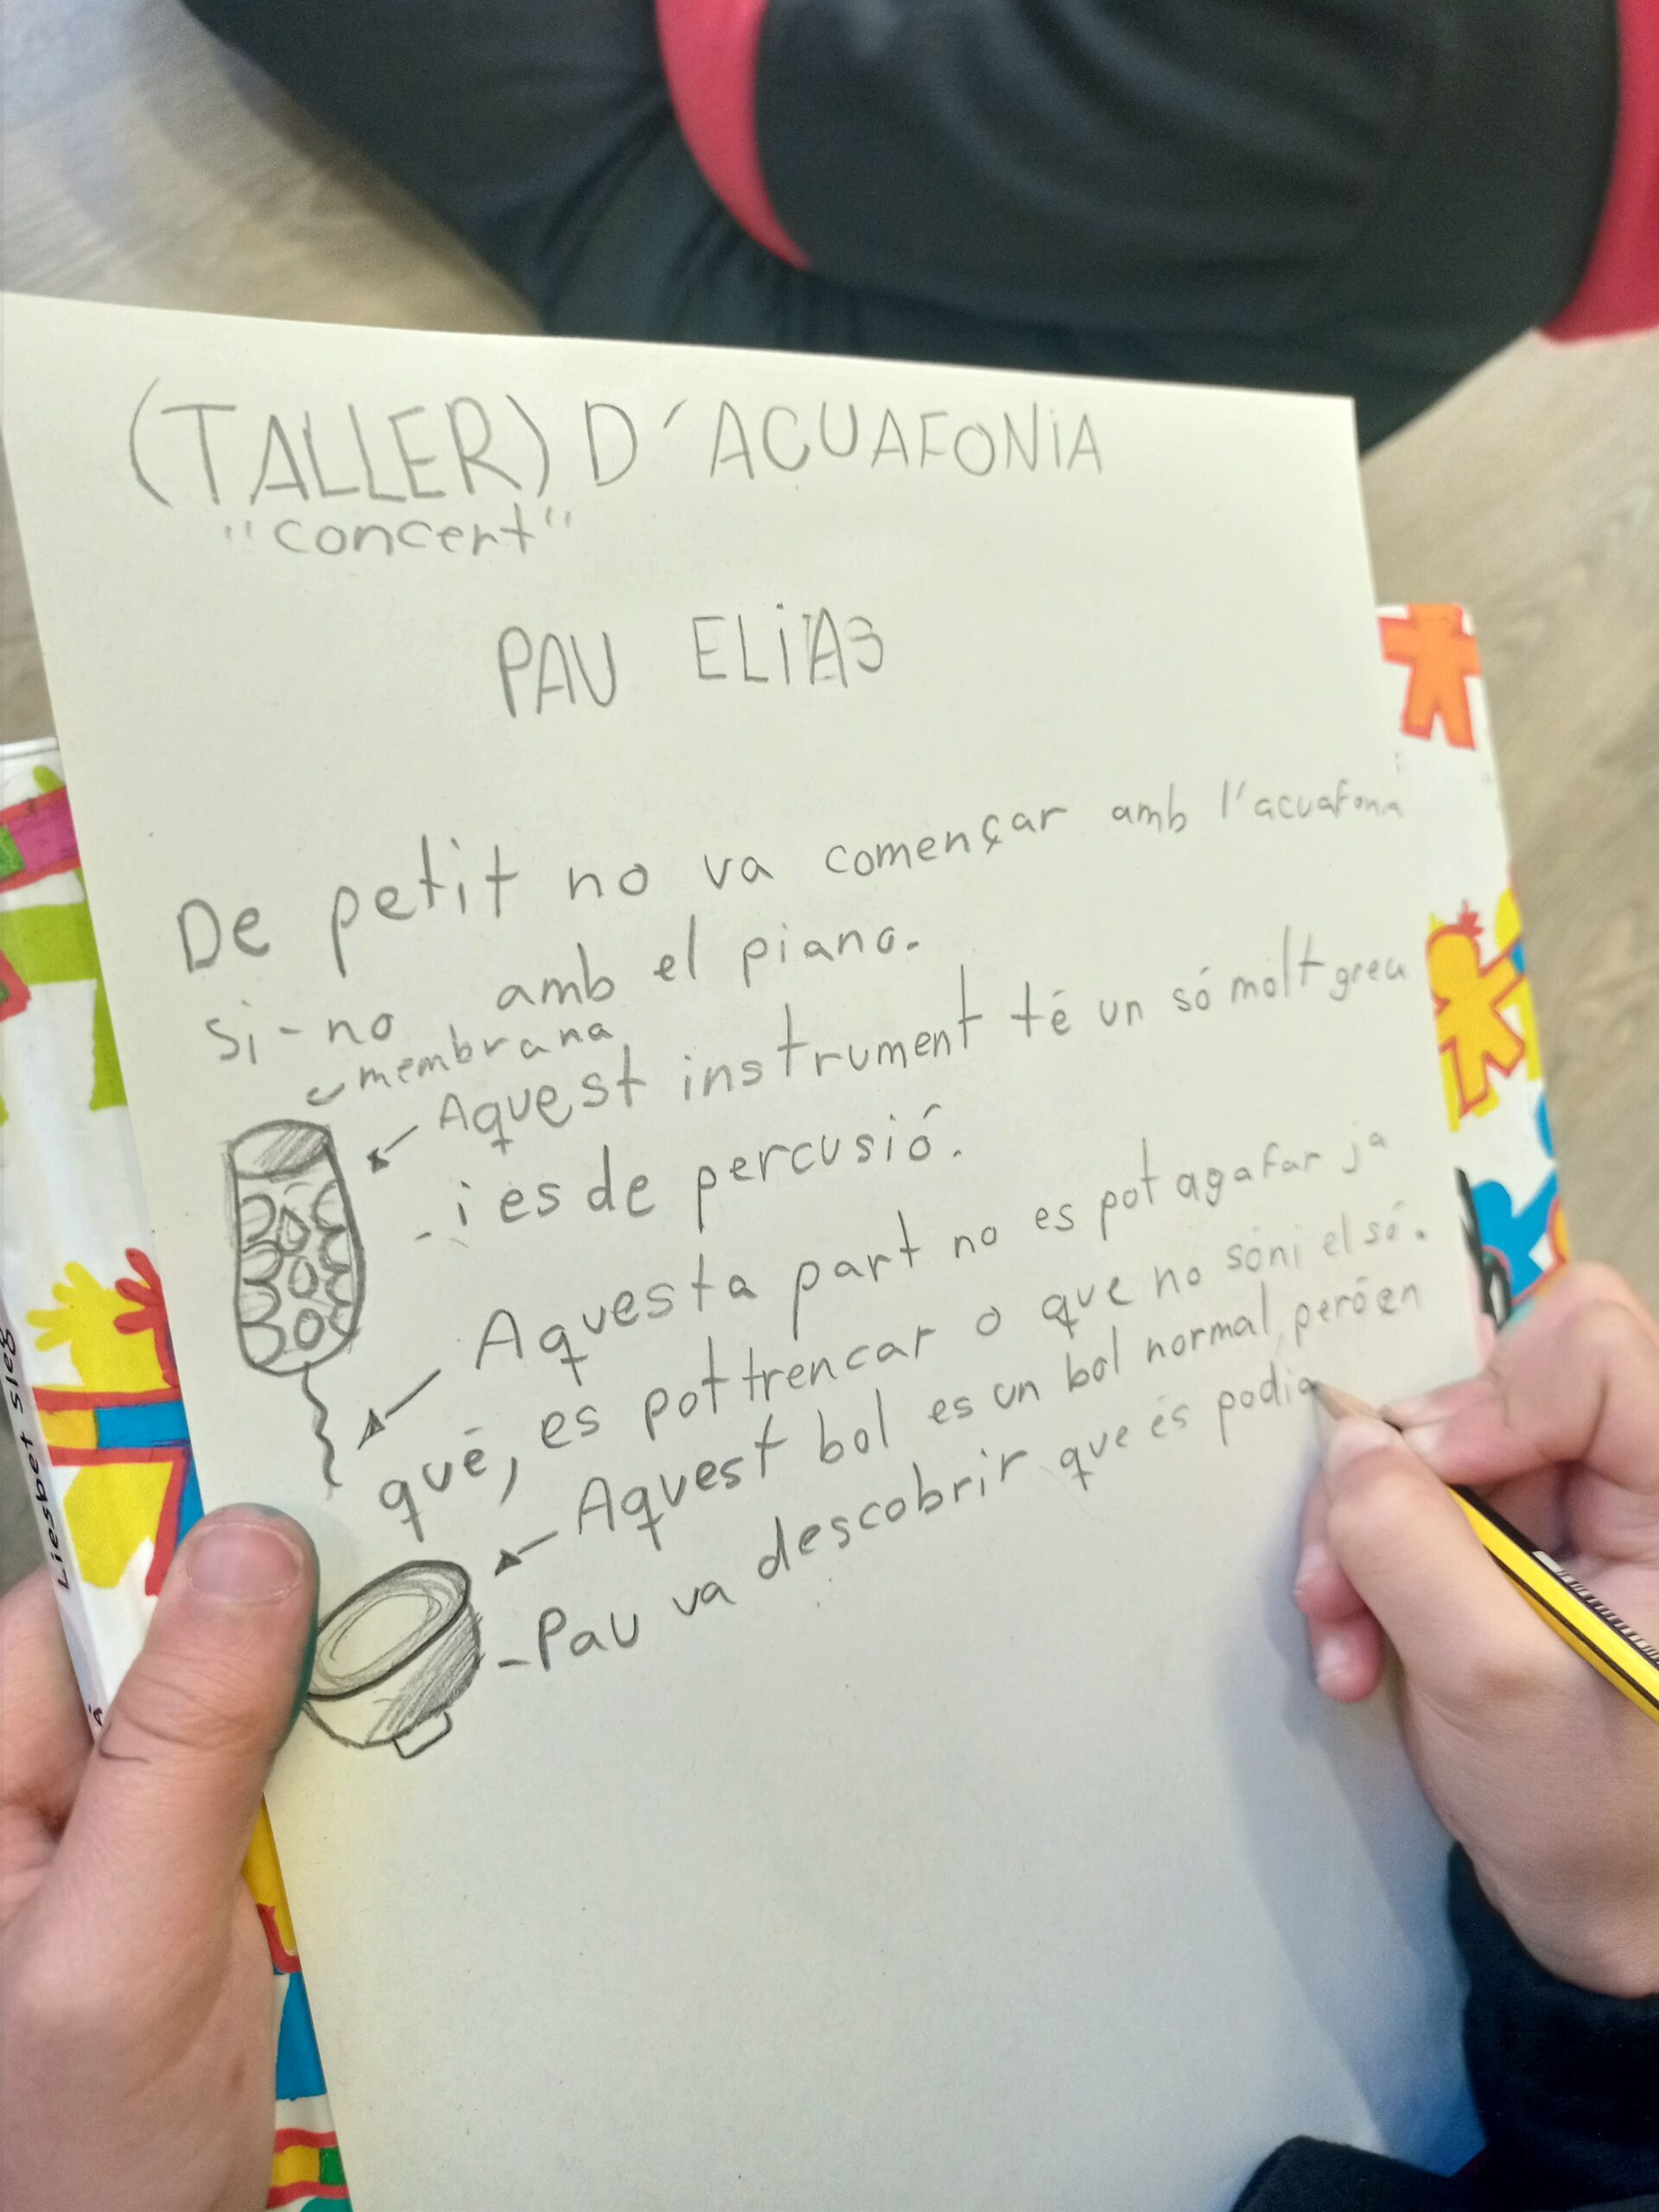 (TALLER) D'ACUAFONIA
"concert"
PAU ELIAS
De petit no va començar amb l'acuafona
si-no amb el piano.
membrana
Aquest instrument té un só molt greu
-i es de percusió.
Aquesta part no es pot agafar ja
qué, es pot trencar o que no sóni el só.
Aquest bol es un bol normal, peró en
-Pau va descobrir que és podia
Liesbet Sleg